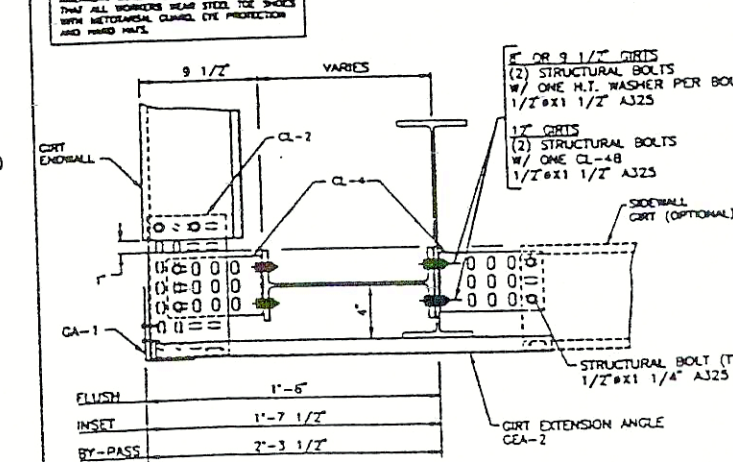 THAT ALL WORKERS WEAR STEEL TOE SHOES
WITH METOTARSAL GUARD, EYE PROTECTION
AND HARD HATS.
9 1/2"
VARIES
8" OR 9 1/2" GIRTS
(2) STRUCTURAL BOLTS
W/ ONE H.T. WASHER PER
1/2"øX1 1/2" A325
12" GIRTS
(2) STRUCTURAL BOLTS
W/ ONE CL-4B
1/2"øX1 1/2" A325
GIRT
ENDWALL
CL-2
CL-4
SIDEWALL
GIRT (OPTIONAL)
1"
4"
GA-1
STRUCTURAL BOLT
1/2"øX1 1/4" A325
FLUSH
1'-6"
INSET
1'-7 1/2"
BY-PASS
2'-3 1/2"
GIRT EXTENSION ANGLE
GEA-2